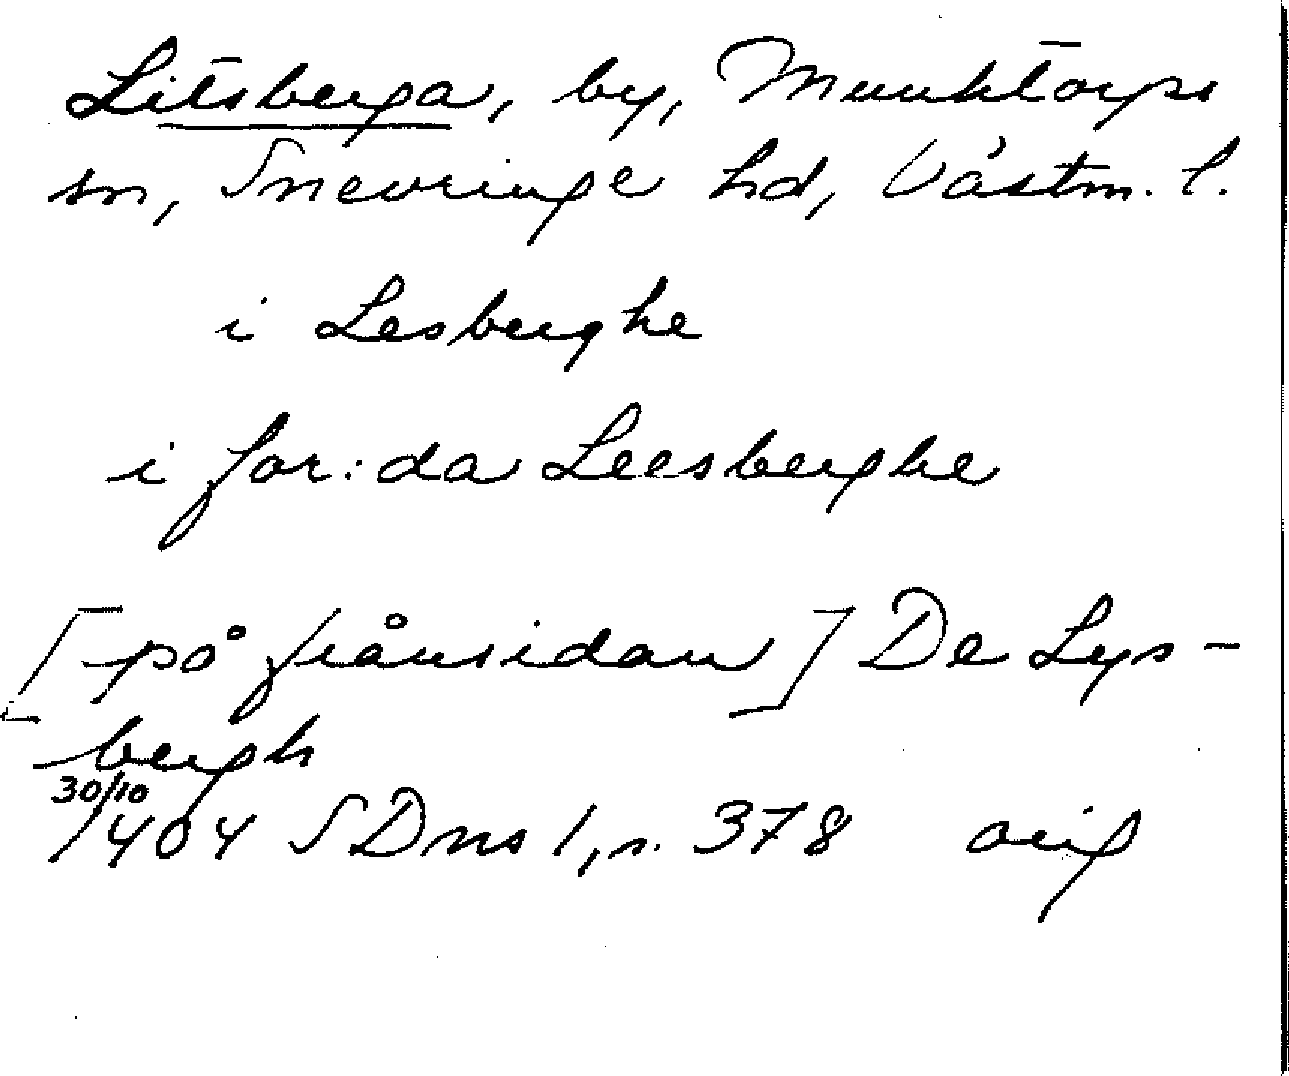 Litsberga, by, Munktorps
sn, Snevringe hd, Västm. l.
i Lesberghe
i for:da Leesberghe
[på frånsidan] De Lys-
bergh
30/10
1404 SDns 1, s. 378 orig